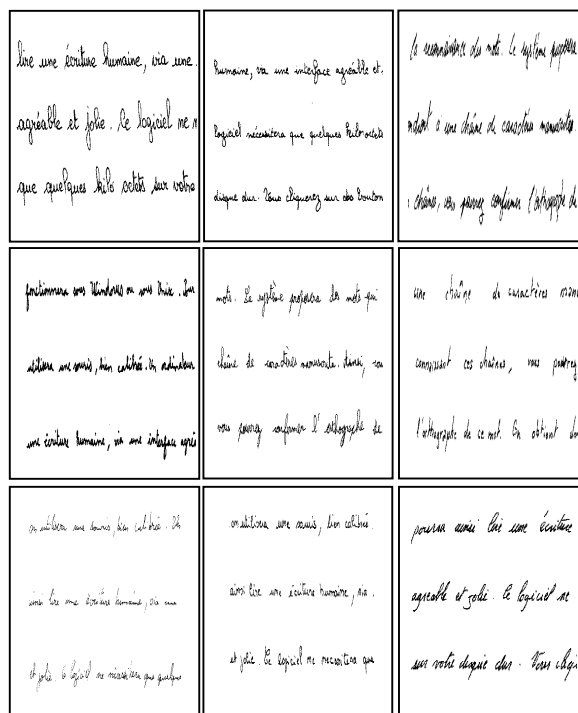 lire une écriture humaine, via une
agréable et jolie. Ce logiciel ne
que quelques kilo octets sur votre
humaine, via une interface agréable et.
logiciel nécessitera que quelques kilooctets
disque dur. Vous cliquerez sur des bouton
la reconnaissance des mots. Le système proposera
à une chaîne de caractères manuscrites.
chaînes, vous pourrez confirmer l'orthographe de
fonctionnera sous Windows ou sous Unix. Pour
utilisera une souris, bien calibrée. Un ordinateur
une écriture humaine, via une interface agréa
mots. Le système proposera des mots qui
chaîne de caractères manuscrite. Ainsi,
vous pourrez confirmer l'orthographe de
une chaîne de caractères manu
connaissant ces chaînes, vous pourrez
l'orthographe de ce mot. On obtient
on utilisera une souris, bien calibrée. Un
ainsi lire une écriture humaine, via une
et jolie. Ce logiciel ne nécessitera que quelque
on utilisera une souris, bien calibrée.
ainsi lire une écriture humaine, via.
et jolie. Ce logiciel ne necessitera que
pourra ainsi lire une écriture
agréable et jolie. Ce logiciel ne
sur votre disque dur. Vous cliq